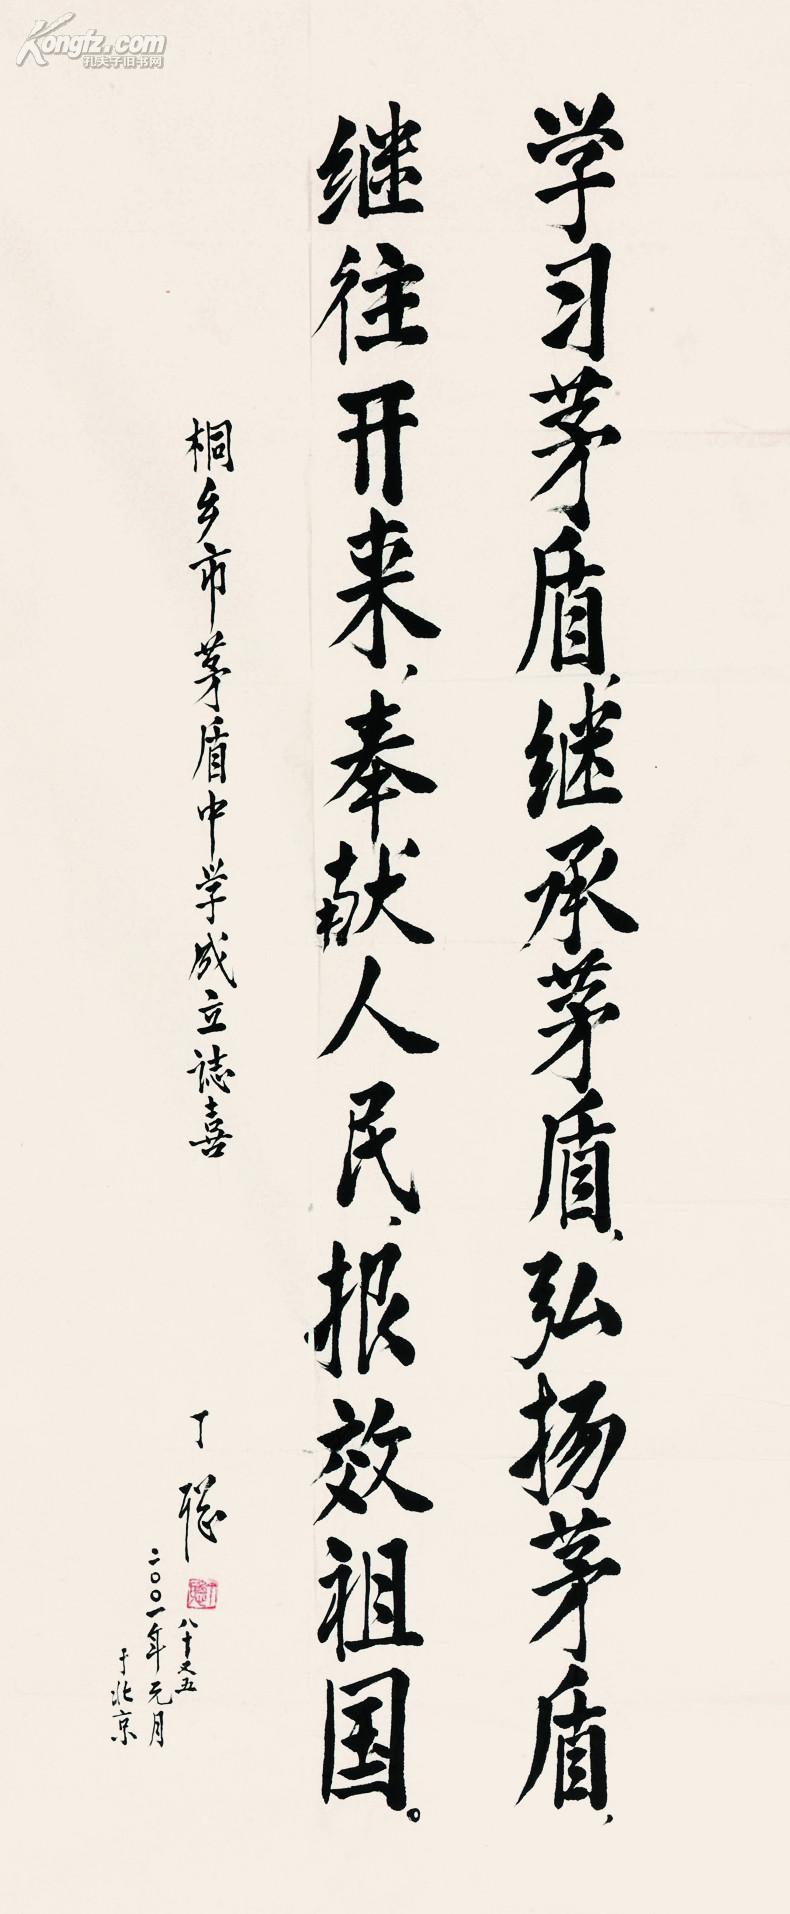 学习茅盾、继承茅盾、弘扬茅盾、
继往开来、奉献人民、报效祖国。
桐乡市茅盾中学成立誌喜
丁聪
八十又五
二〇〇一年元月
于北京
Kongfz.com
孔夫子旧书网